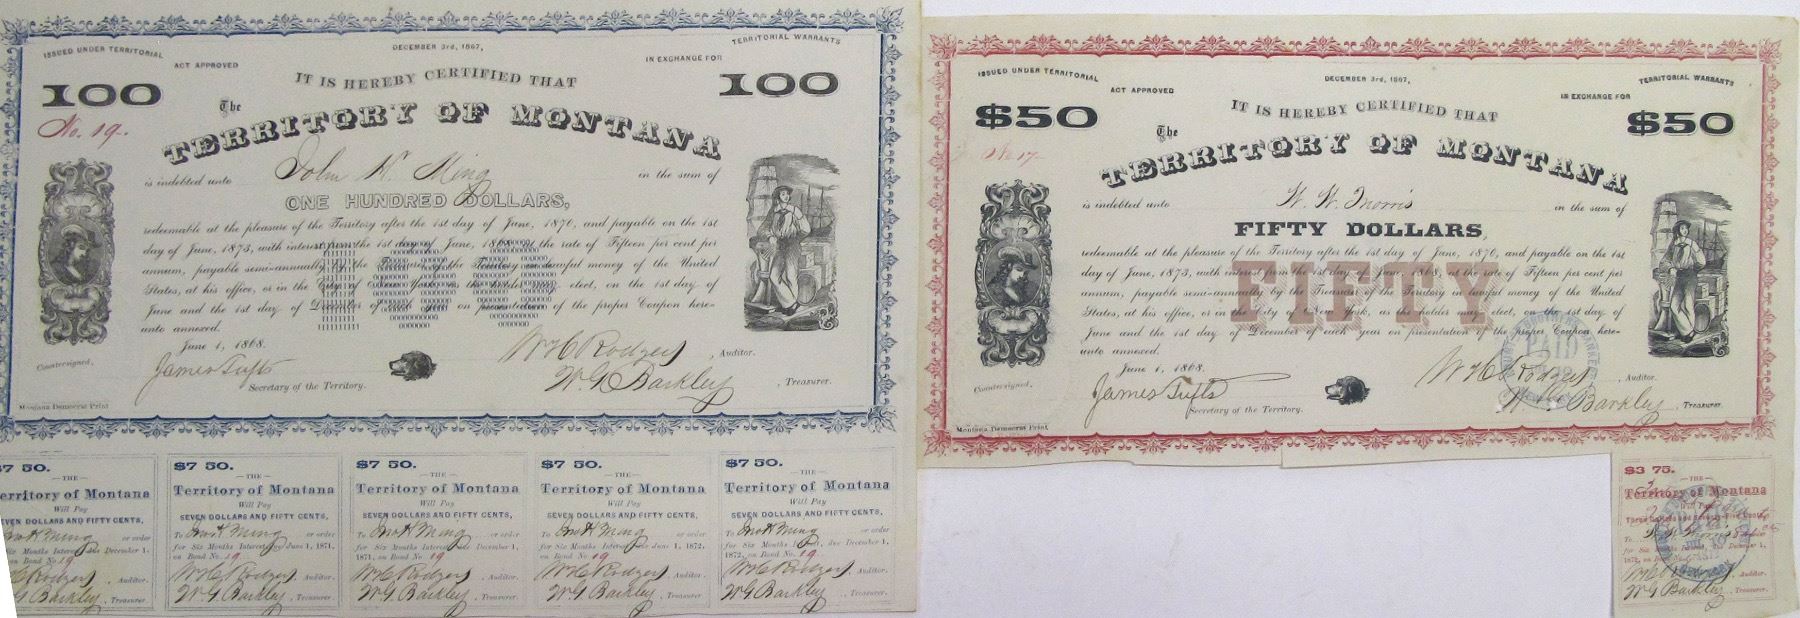 ISSUED UNDER TERRITORIAL
ACT APPROVED
DECEMBER 3rd, 1867,
IN EXCHANGE FOR
TERRITORIAL WARRANTS
100
100
No. 19.
IT IS HEREBY CERTIFIED THAT
The
TERRITORY OF MONTANA
is indebted unto John H. Ming in the sum of
ONE HUNDRED DOLLARS,
redeemable at the pleasure of the Territory after the 1st day of June, 1870, and payable on the 1st
day of June, 1873, with interest from the 1st day of June, 1868, at the rate of Fifteen per cent per
annum, payable semi-annually by the Treasurer of the Territory in lawful money of the United
States, at his office, or in the City of New York, as the holder may elect, on the 1st day of
June and the 1st day of December of each year on presentation of the proper Coupon here-
unto annexed.
100
June 1, 1868.
Countersigned,
James Tufts
Secretary of the Territory.
W H Rodgers, Auditor.
W. G. Barkley, Treasurer.
Montana Democrat Print
$7 50.
—THE—
Territory of Montana
Will Pay
SEVEN DOLLARS AND FIFTY CENTS,
Jno H Ming
For Six Months Interest due December 1,
on Bond No. 19
W H Rodgers, Auditor.
W G Barkley, Treasurer.
$7 50.
—THE—
Territory of Montana
Will Pay
SEVEN DOLLARS AND FIFTY CENTS,
To Jno H Ming or order
for Six Months Interest due June 1, 1871,
on Bond No. 19
W H Rodgers, Auditor.
W. G. Barkley, Treasurer.
$7 50.
—THE—
Territory of Montana
Will Pay
SEVEN DOLLARS AND FIFTY CENTS,
To Jno H Ming or order
for Six Months Interest due December 1,
1871, on Bond No. 19
W H Rodgers, Auditor.
W. G. Barkley, Treasurer.
$7 50.
—THE—
Territory of Montana
Will Pay
SEVEN DOLLARS AND FIFTY CENTS,
To Jno H Ming or order
for Six Months Interest due June 1, 1872,
on Bond No. 19
W H Rodgers, Auditor.
W. G. Barkley, Treasurer.
$7 50.
—THE—
Territory of Montana
Will Pay
SEVEN DOLLARS AND FIFTY CENTS,
To Jno H Ming or order
for Six Months Interest due December 1,
1872, on Bond No. 19
W H Rodgers, Auditor.
W. G. Barkley, Treasurer.
ISSUED UNDER TERRITORIAL
ACT APPROVED
DECEMBER 3rd, 1867,
IN EXCHANGE FOR
TERRITORIAL WARRANTS
$50
$50
No 17
IT IS HEREBY CERTIFIED THAT
The
TERRITORY OF MONTANA
is indebted unto W. W. Morris in the sum of
FIFTY DOLLARS,
redeemable at the pleasure of the Territory after the 1st day of June, 1870, and payable on the 1st
day of June, 1873, with interest from the 1st day of June, 1868, at the rate of Fifteen per cent per
annum, payable semi-annually by the Treasurer of the Territory in lawful money of the United
States, at his office, or in the City of New York, as the holder may elect, on the 1st day of
June and the 1st day of December of each year on presentation of the proper Coupon here-
unto annexed.
FIFTY
PAID
June 1, 1868.
Countersigned,
James Tufts
Secretary of the Territory.
W H Rodgers, Auditor.
W. G. Barkley, Treasurer.
Montana Democrat Print
$3 75.
—THE—
Territory of Montana
Will Pay
Three Dollars and Seventy Five Cents,
To W. W. Morris
for Six Months Interest due December 1,
1872, on Bond No.
W H Rodgers, Auditor.
W G Barkley, Treasurer.